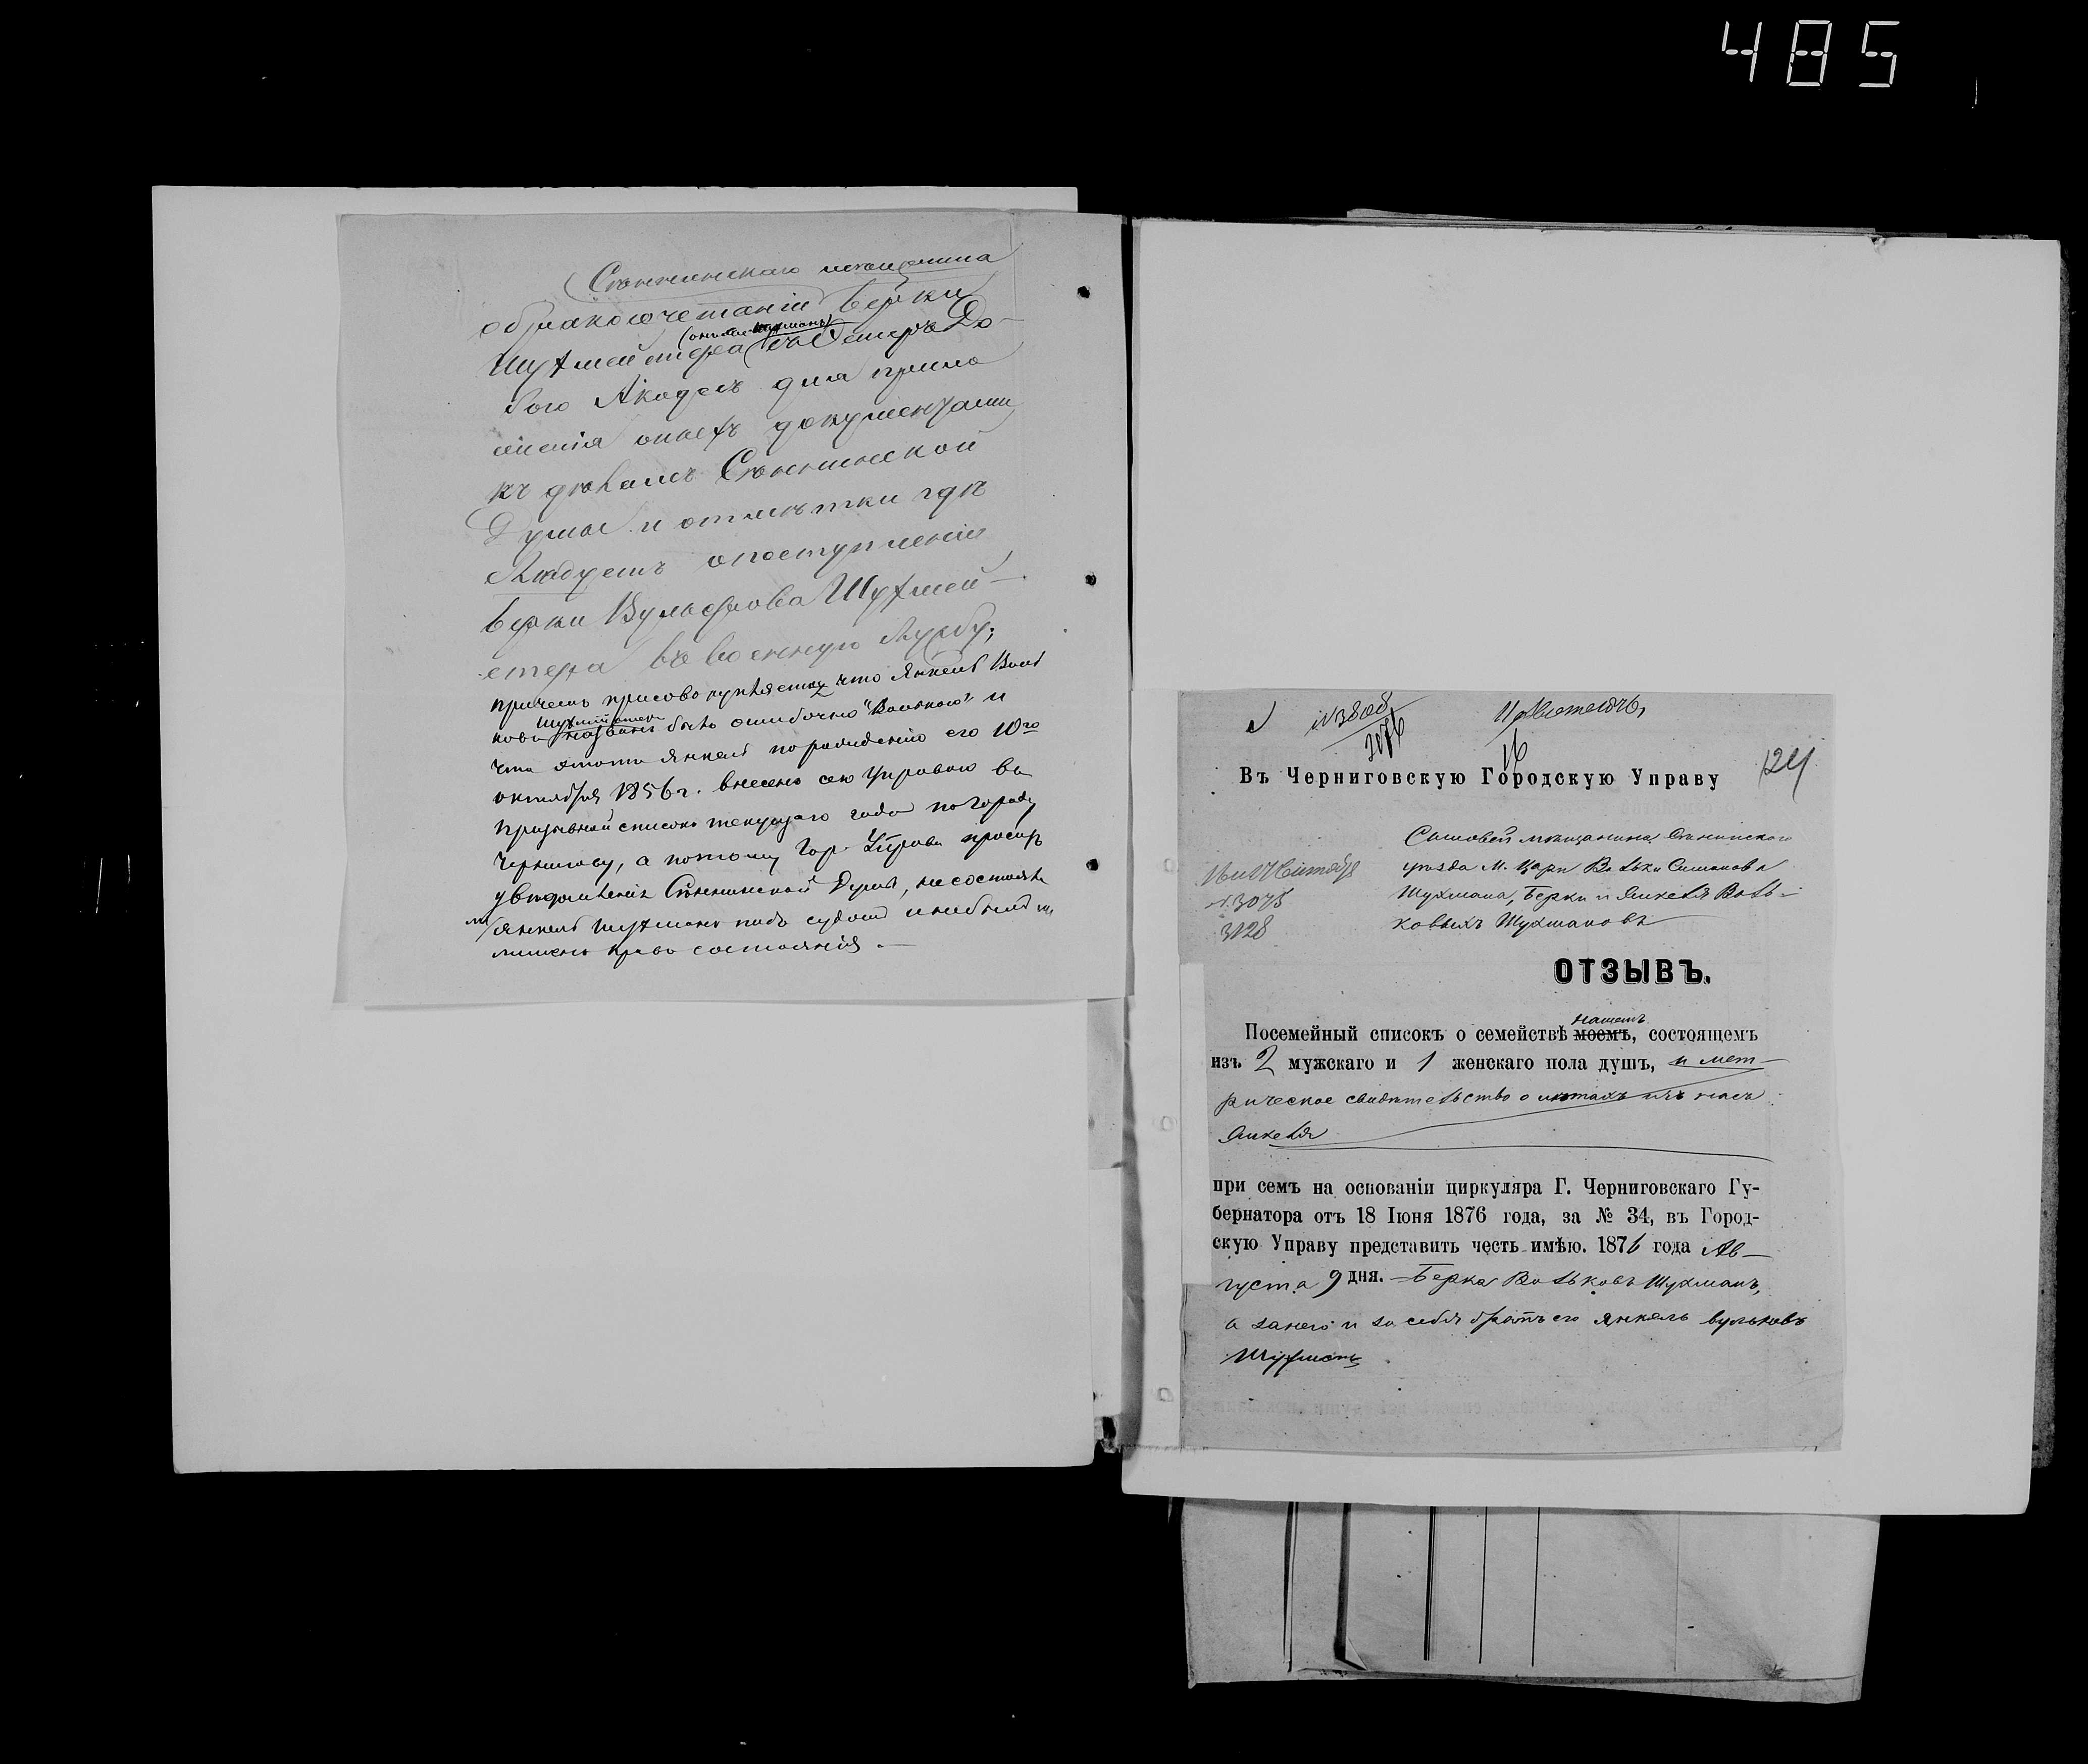 485
Сѣнненскаго мѣщанина
о бракосочетаніи Берки
(онъ же Шухманъ)
Шухмейстера съ Эстеръ До-
бою Аккадемъ для прило
женія онаго документами
къ дѣламъ Сѣнненской
Думы и отмѣтки гдѣ
слѣдуетъ о поступленіи
Берки Вульфова Шухмей-
стера въ военную службу;
причемъ присовокупляетъ что Янкель Воль
ковъ Шухманъ названъ былъ ошибочно "Волькою" и
что этотъ Янкель по рожденію его 10го
октября 1856 г. внесенъ сею Управою въ
призывной списокъ текущаго года по городу
Чернигову, а потому Гор. Управа проситъ
увѣдомленія Сѣнненской Думы, не состоялъ
ли Янкель Шухманъ подъ судомъ и не былъ ли
лишенъ права состоянія. —
№ 3808
2076
16
124
Въ Черниговскую Городскую Управу
Сыновей мѣщанина Сѣнненскаго
уѣзда М. Вольки Симонова
Шухмана, Берки и Янкеля Воль-
ковыхъ Шухмановъ
16 и 17 Сентября
№ 3075
3128
ОТЗЫВЪ.
нашемъ
Посемейный списокъ о семействѣ моемъ, состоящемъ
изъ 2 мужскаго и 1 женскаго пола душъ, и мет-
рическое свидѣтельство о лѣтахъ изъ насъ
Янкеля
при семъ на основаніи циркуляра Г. Черниговскаго Гу-
бернатора отъ 18 Іюня 1876 года, за № 34, въ Город-
скую Управу представить честь имѣю. 1876 года Ав-
густа 9 дня. Берка Вольковъ Шухманъ,
а за него и за себя братъ его Янкель Вульковъ
Шухманъ